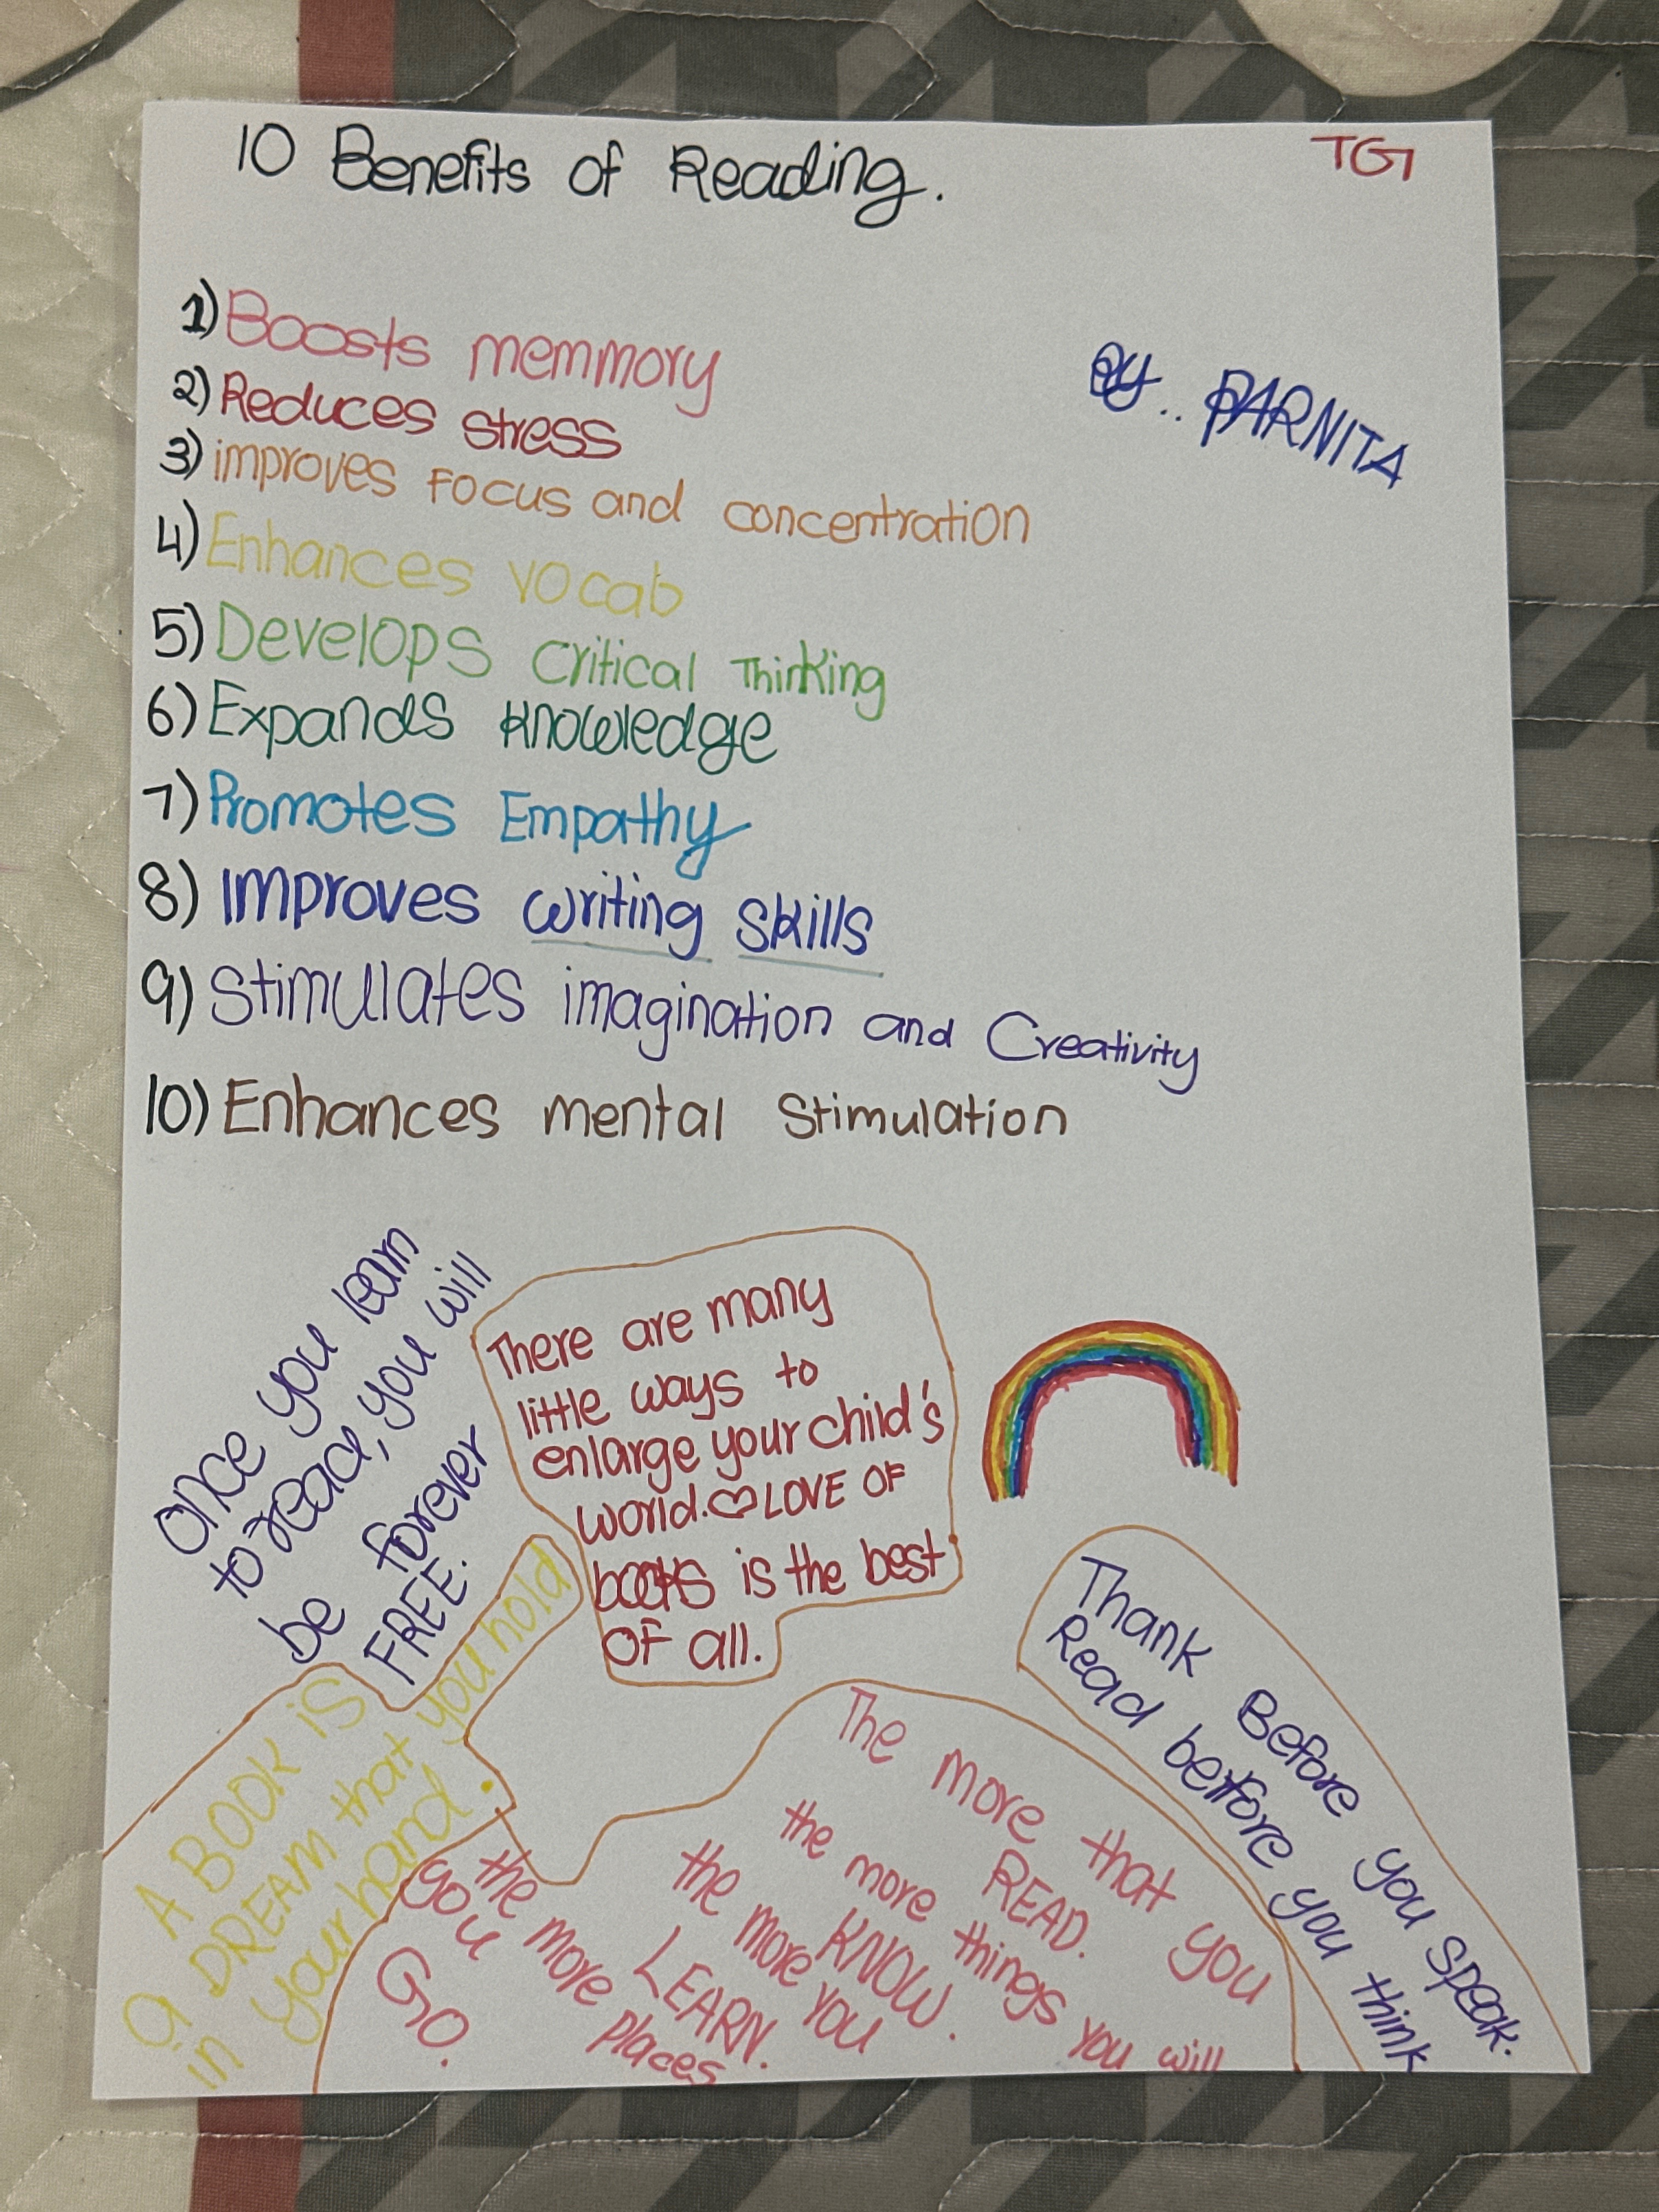 10 Benefits of Reading.
TG
By.. PARNITA
1) Boosts memmory
2) Reduces stress
3) improves Focus and concentration
4) Enhances vocab
5) Develops Critical Thinking
6) Expands Knowledge
7) Promotes Empathy
8) Improves writing skills
9) Stimulates imagination and Creativity
10) Enhances mental Stimulation
once you learn
to read, you will
be forever
FREE.
There are many
little ways to
enlarge your child's
world. ♡ LOVE OF
books is the best
OF all.
A BOOK is
a DREAM that you hold
in your hand.
The more that you
READ.
the more things you will
KNOW.
the more YOU
LEARN.
the more places
you
GO.
Thank Before you speak.
Read before you think